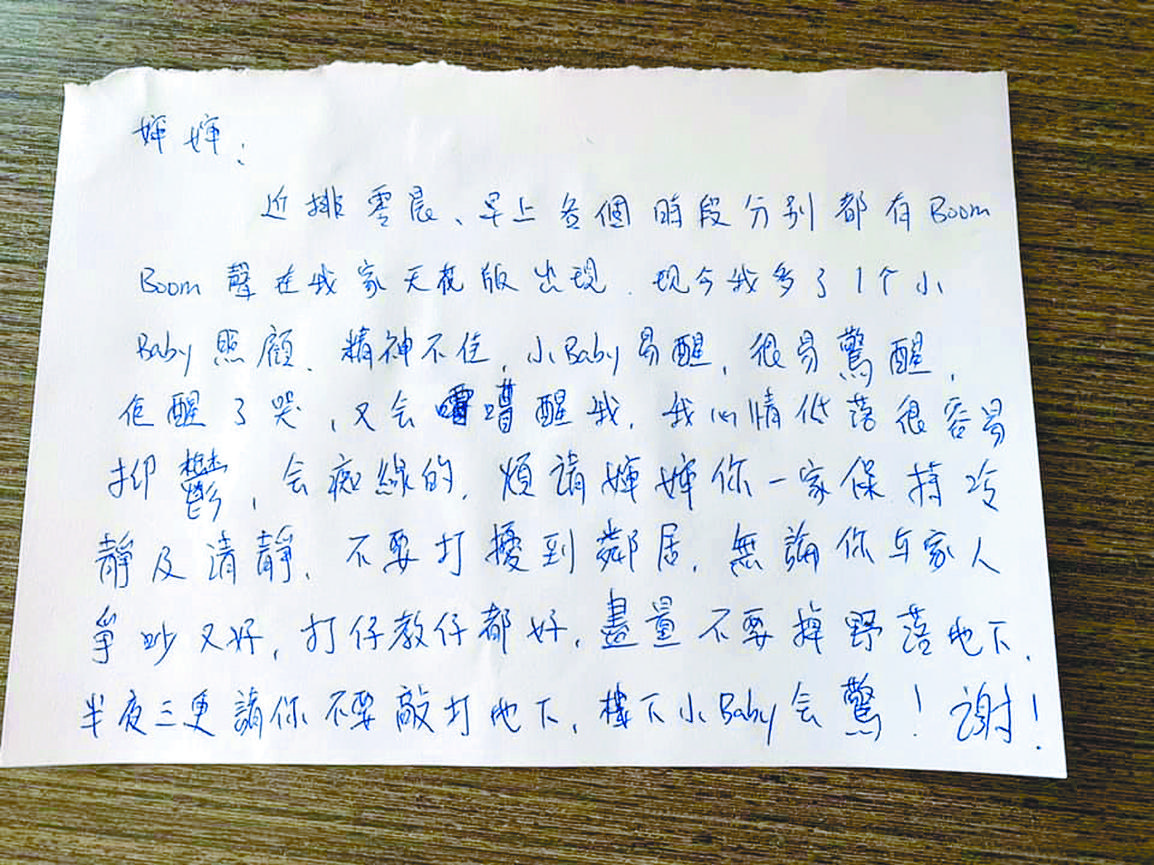 婶婶：
近排零晨、早上各個時段分别都有Boom
Boom聲在我家天花版出现．现今我多了1个小
Baby照顧．精神不佳，小Baby易醒，很易驚醒，
佢醒了哭，又会嘈醒我，我心情低落很容易
抑鬱，会痴線的，煩請婶婶你一家保持冷
靜及清靜，不要打擾到鄰居，無論你与家人
爭吵又好，打仔教仔都好，盡量不要掉野落地下，
半夜三更請你不要敲打地下，樓下小Baby会驚！谢！